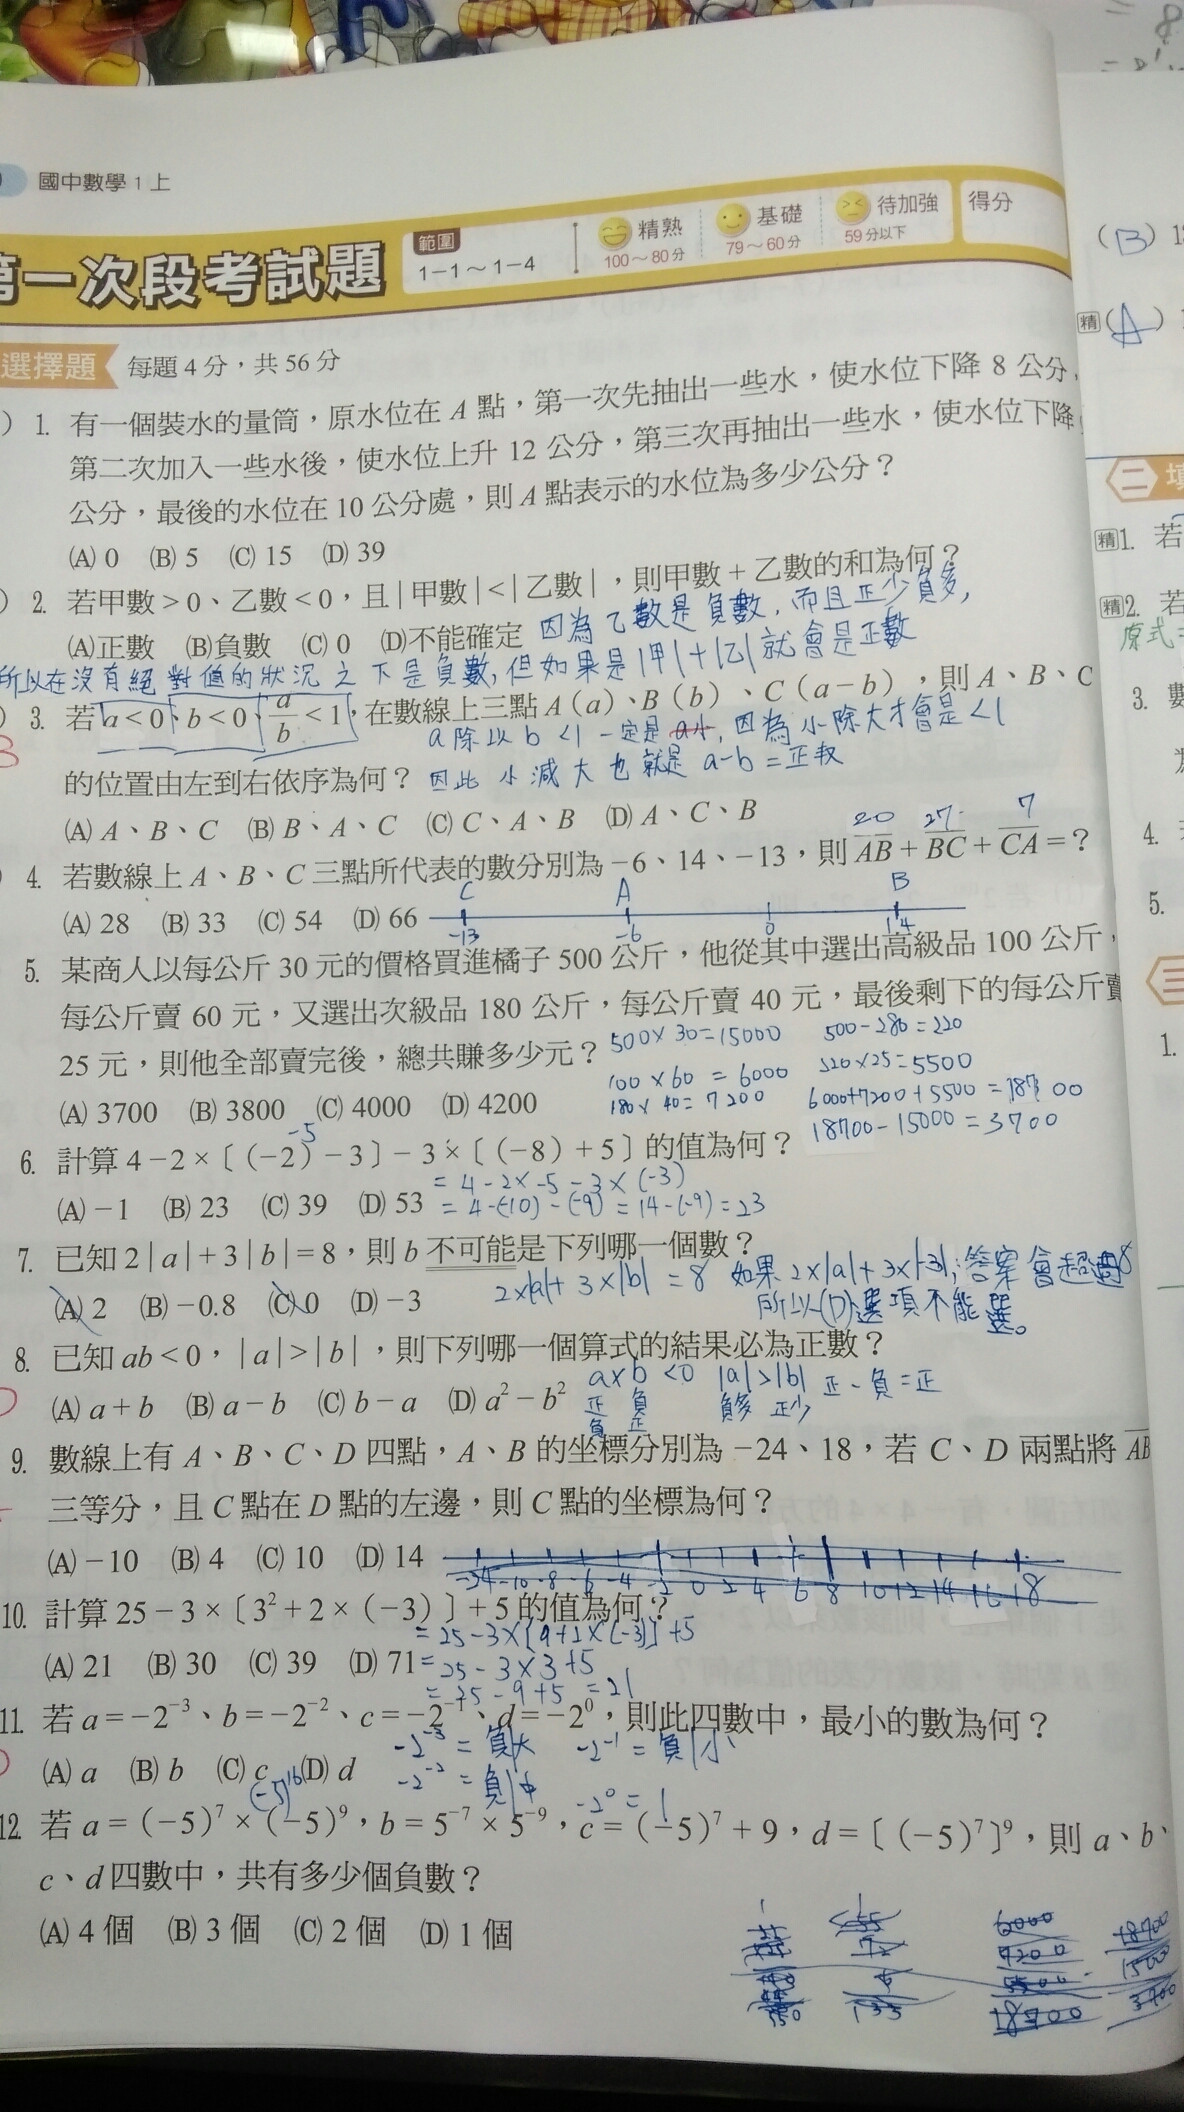 國中數學1上
第一次段考試題
範圍
1-1～1-4
精熟
100～80分
基礎
79～60分
待加強
59分以下
得分
選擇題 每題4分，共56分
) 1. 有一個裝水的量筒，原水位在A點，第一次先抽出一些水，使水位下降8公分，
第二次加入一些水後，使水位上升12公分，第三次再抽出一些水，使水位下降
公分，最後的水位在10公分處，則A點表示的水位為多少公分？
(A) 0 (B) 5 (C) 15 (D) 39
) 2. 若甲數>0、乙數<0，且|甲數|<|乙數|，則甲數+乙數的和為何？
(A)正數 (B)負數 (C) 0 (D)不能確定 因為乙數是負數，而且正少負多，
所以在沒有絕對值的狀況之下是負數，但如果是|甲|+|乙|就會是正數
) 3. 若a<0、b<0、a/b<1，在數線上三點A(a)、B(b)、C(a-b)，則A、B、C
a除以b<1一定是a小，因為小除大才會是<1
的位置由左到右依序為何？ 因此小減大也就是a-b=正
(A) A、B、C (B) B、A、C (C) C、A、B (D) A、C、B
20 27 7
4. 若數線上A、B、C三點所代表的數分別為-6、14、-13，則AB+BC+CA=？
(A) 28 (B) 33 (C) 54 (D) 66
C A B
-13 -6 0 14
5. 某商人以每公斤30元的價格買進橘子500公斤，他從其中選出高級品100公斤，
每公斤賣60元，又選出次級品180公斤，每公斤賣40元，最後剩下的每公斤賣
25元，則他全部賣完後，總共賺多少元？ 500×30=15000 500-280=220
100×60=6000 220×25=5500
(A) 3700 (B) 3800 (C) 4000 (D) 4200 180×40=7200 6000+7200+5500=18700
18700-15000=3700
-5
6. 計算4-2×〔(-2)-3〕-3×〔(-8)+5〕的值為何？
=4-2×-5-3×(-3)
(A) -1 (B) 23 (C) 39 (D) 53 =4-(-10)-(-9)=14-(-9)=23
7. 已知2|a|+3|b|=8，則b不可能是下列哪一個數？
2×|a|+3×|b|=8 如果2×|a|+3×|-3|；答案會超過8
(A) 2 (B) -0.8 (C) 0 (D) -3 所以(D)選項不能選。
8. 已知ab<0，|a|>|b|，則下列哪一個算式的結果必為正數？
(A) a+b (B) a-b (C) b-a (D) a²-b² a×b<0 |a|>|b| 正-負=正
正 負 負多 正少
負 正
9. 數線上有A、B、C、D四點，A、B的坐標分別為-24、18，若C、D兩點將AB
三等分，且C點在D點的左邊，則C點的坐標為何？
(A) -10 (B) 4 (C) 10 (D) 14
-24 -10 -8 -6 -4 -2 0 2 4 6 8 10 12 14 16 18
10. 計算25-3×〔3²+2×(-3)〕+5的值為何？
=25-3×[9+2×(-3)]+5
(A) 21 (B) 30 (C) 39 (D) 71 =25-3×3+5
=25-9+5=21
11. 若a=-2⁻³、b=-2⁻²、c=-2⁻¹、d=-2⁰，則此四數中，最小的數為何？
-2⁻³=負大 -2⁻¹=負小
(A) a (B) b (C) c (D) d -2⁻²=負中
(-5)¹⁶ -2⁰=1
12. 若a=(-5)⁷×(-5)⁹，b=5⁻⁷×5⁻⁹，c=(-5)⁷+9，d=〔(-5)⁷〕⁹，則a、b、
c、d四數中，共有多少個負數？
(A) 4個 (B) 3個 (C) 2個 (D) 1個
6000
7200
5500
18700
18700
1500
3700
(B) 1
精 (A)
二 填
精1. 若
精2. 若
原式=
3. 數
4.
5.
三
1.